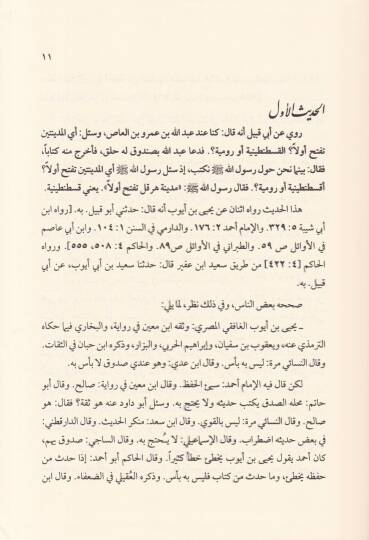 ١١
الحديث الأول
روي عن أبي قبيل أنه قال: كنا عند عبد الله بن عمرو بن العاص، وسئل: أي المدينتين
تفتح أولاً؟ القسطنطينية أو رومية؟. فدعا عبد الله بصندوق له حلق، فأخرج منه كتاباً،
فقال: بينما نحن حول رسول الله ﷺ نكتب، إذ سئل رسول الله ﷺ أي المدينتين تفتح أولاً؟
أقسطنطينية أو رومية؟. فقال رسول الله ﷺ: «مدينة هرقل تفتح أولاً». يعني قسطنطينية.
هذا الحديث رواه اثنان عن يحيى بن أيوب أنه قال: حدثني أبو قبيل. به. [رواه ابن
أبي شيبة ٥: ٣٢٩. والإمام أحمد ٢: ١٧٦. والدارمي في السنن ١: ١٠٤. وابن أبي عاصم
في الأوائل ص ٥٩. والطبراني في الأوائل ص٨٩. والحاكم ٤: ٥٠٨، ٥٥٥]. ورواه
الحاكم [٤: ٤٢٢] من طريق سعيد ابن عفير قال: حدثنا سعيد بن أبي أيوب، عن أبي
قبيل. به.
صححه بعض الناس، وفي ذلك نظر، لما يلي:
ـ يحيى بن أيوب الغافقي المصري: وثقه ابن معين في رواية، والبخاري فيما حكاه
الترمذي عنه، ويعقوب بن سفيان، وإبراهيم الحربي، والبزار، وذكره ابن حبان في الثقات.
وقال النسائي مرة: ليس به بأس. وقال ابن عدي: وهو عندي صدوق لا بأس به.
لكن قال فيه الإمام أحمد: سيئ الحفظ. وقال ابن معين في رواية: صالح. وقال أبو
حاتم: محله الصدق يكتب حديثه ولا يحتج به. وسئل أبو داود عنه هو ثقة؟ فقال: هو
صالح. وقال النسائي مرة: ليس بالقوي. وقال ابن سعد: منكر الحديث. وقال الدارقطني:
في بعض حديثه اضطراب. وقال الإسماعيلي: لا يُحتج به. وقال الساجي: صدوق يهم،
كان أحمد يقول يحيى بن أيوب يخطئ خطأ كثيراً. وقال الحاكم أبو أحمد: إذا حدث من
حفظه يخطئ، وما حدث من كتاب فليس به بأس. وذكره العُقيلي في الضعفاء. وقال ابن